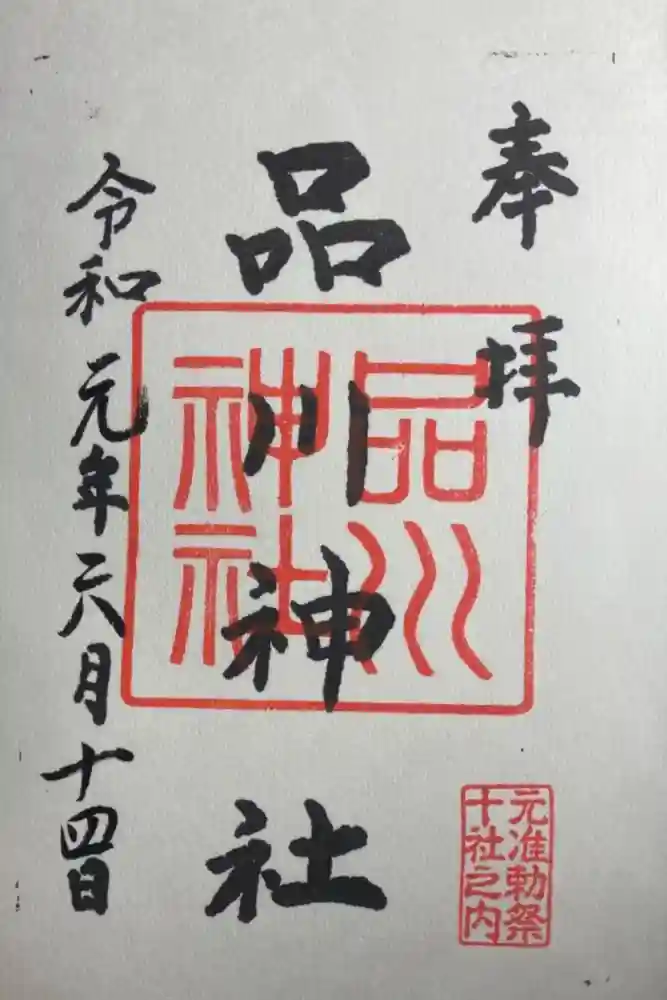 奉拝
品川神社
品川
神社
令和元年六月十四日
元准勅祭
十社之内